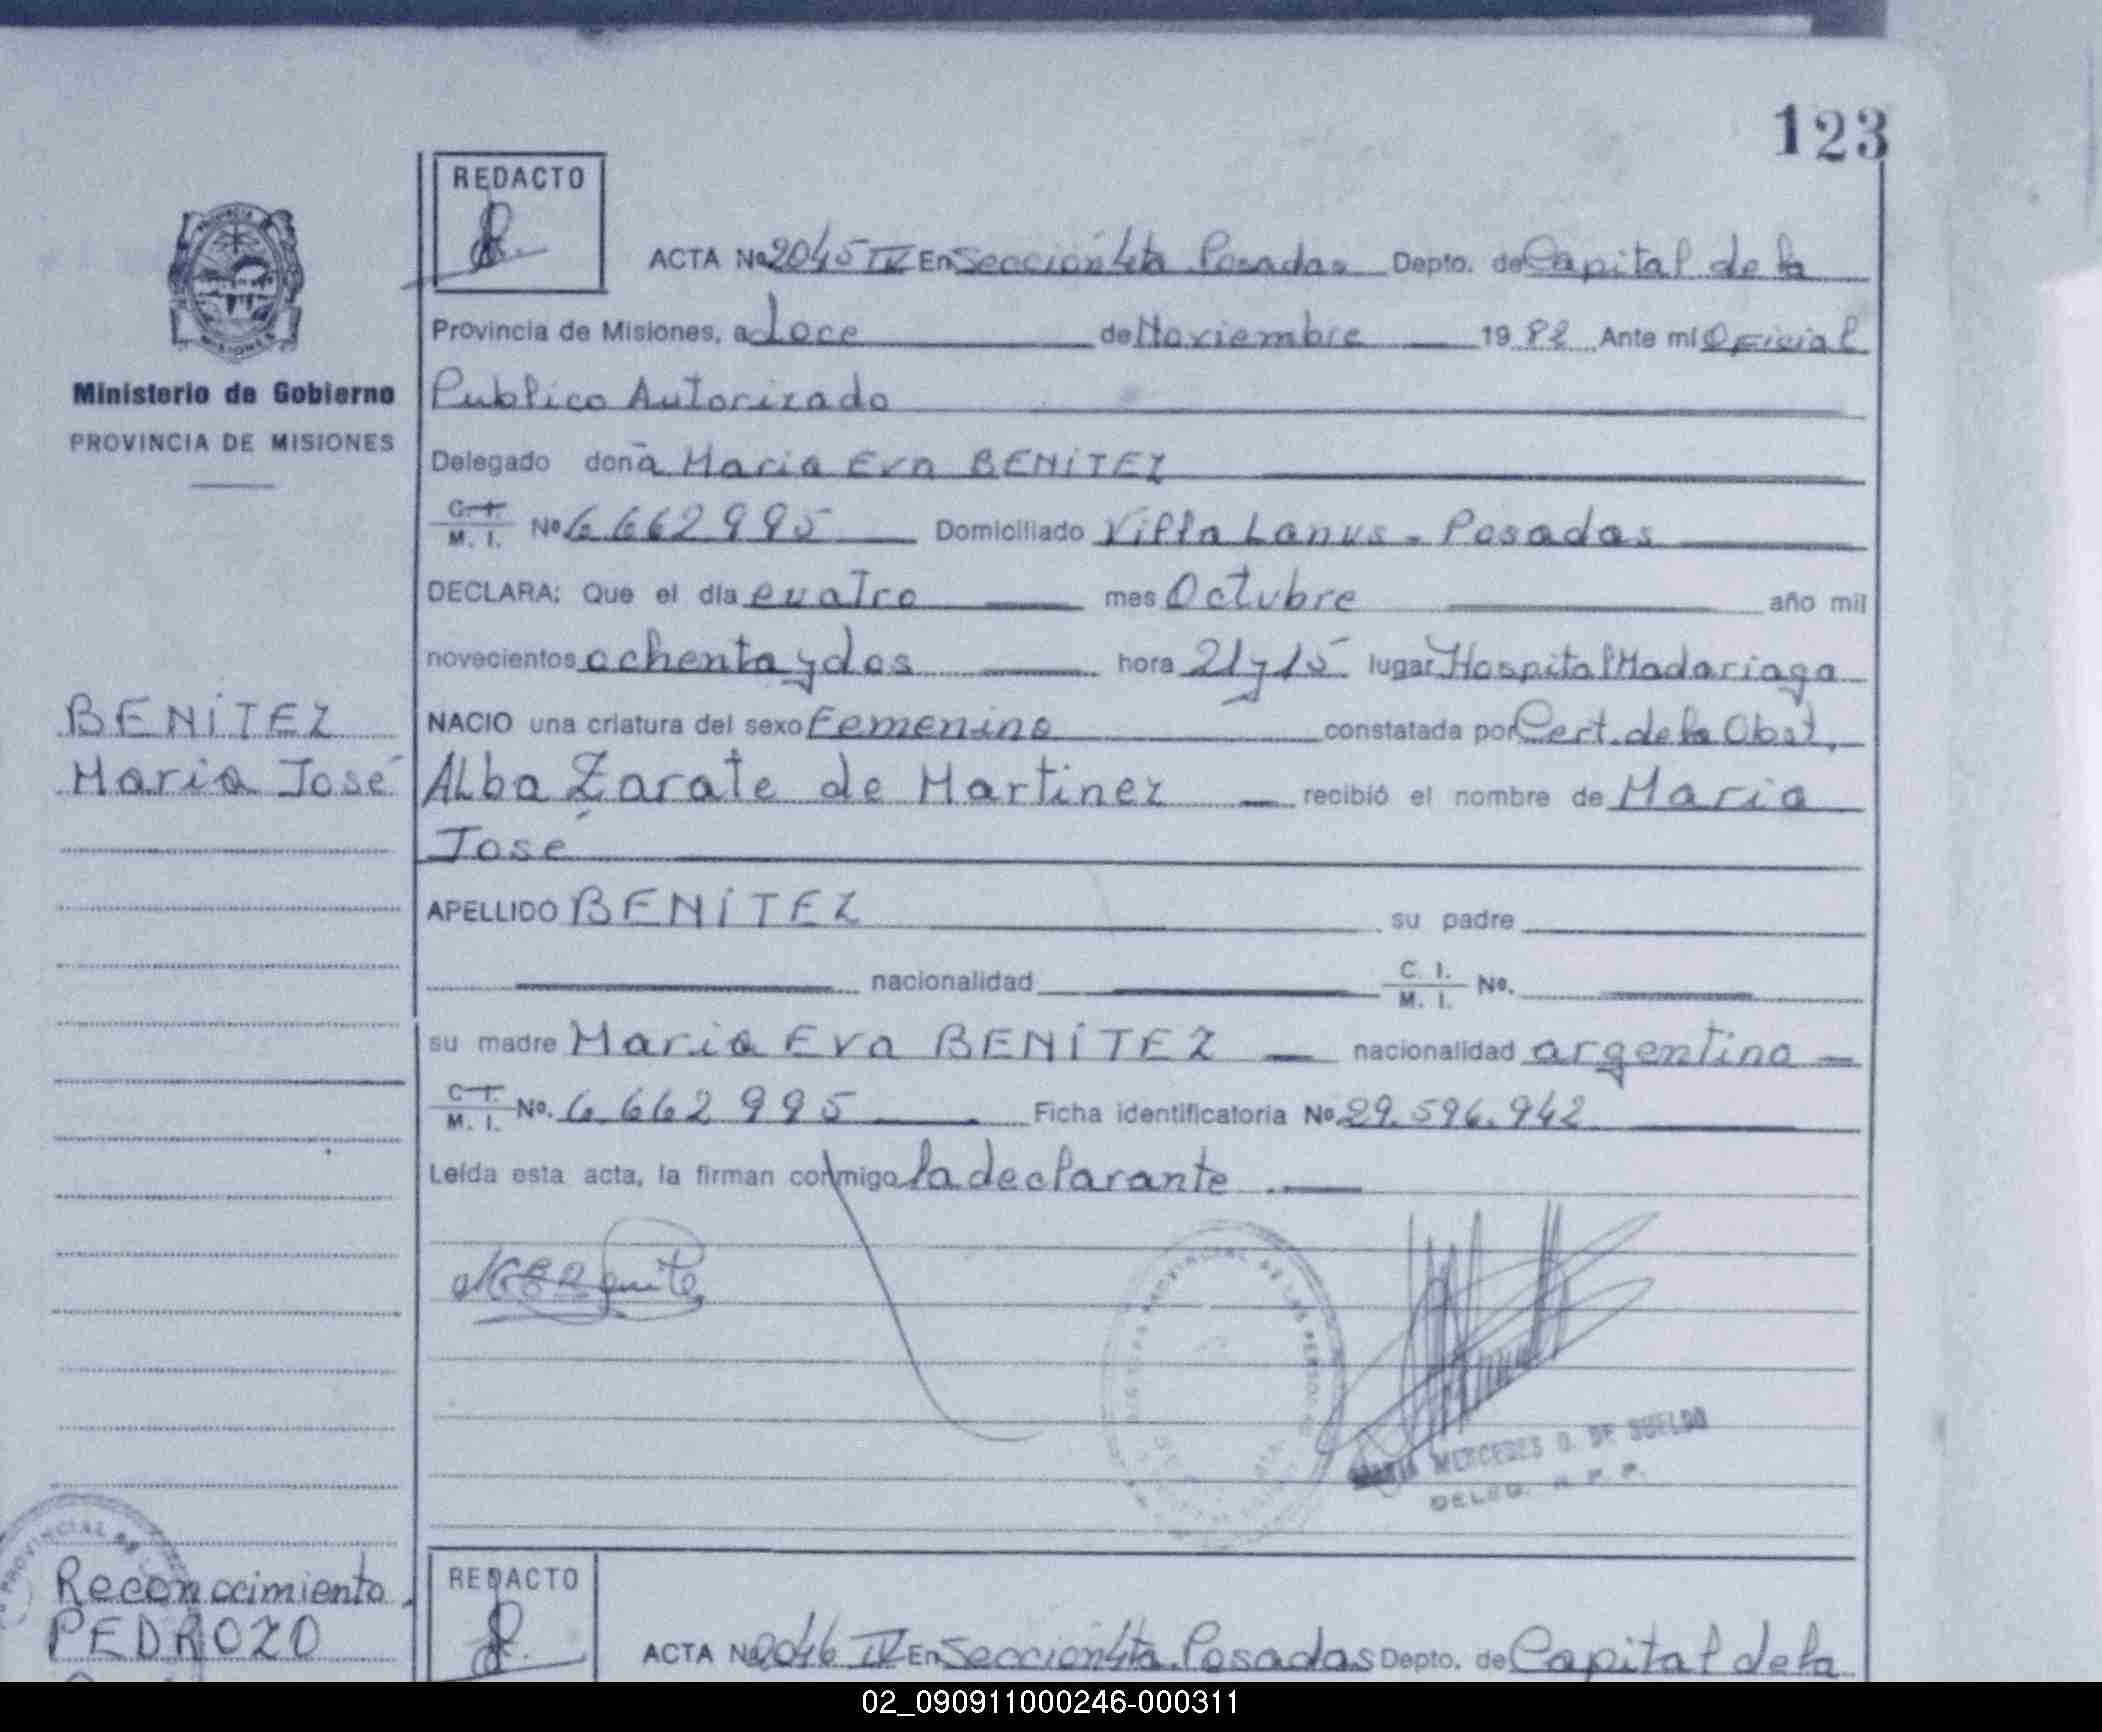 123
REDACTO
ACTA Nº 2045 IV En Sección 4ta Posadas Depto. de Capital de la
Provincia de Misiones, a doce de Noviembre 1982 Ante mí Oficial
Publico Autorizado
Ministerio de Gobierno
PROVINCIA DE MISIONES
Delegado doña Maria Eva BENÍTEZ
C. I.
M. I. Nº 6.662995 Domiciliado Villa Lanus - Posadas
DECLARA: Que el día cuatro mes Octubre año mil
novecientos ochenta y dos hora 21 y 15 lugar Hospital Madariaga
BENÍTEZ
NACIO una criatura del sexo Femenino constatada por Cert. de la Obst.
Maria José
Alba Zarate de Martinez recibió el nombre de Maria
José
APELLIDO BENÍTEZ su padre
nacionalidad C. I.
M. I. No.
su madre Maria Eva BENÍTEZ nacionalidad argentina
C. I.
M. I. No. 6.662995 Ficha identificatoria Nº 29.596.942
Leída esta acta, la firman conmigo la declarante.
PROVINCIAL DE LAS PERSONAS
MARIA MERCEDES D. DE SUELDO
DELEG. R. P. P.
PROVINCIAL DE
Reconocimiento
PEDROZO
REDACTO
ACTA Nº 2046 IV En Sección 4ta. Posadas Depto. de Capital de la
02_090911000246-000311